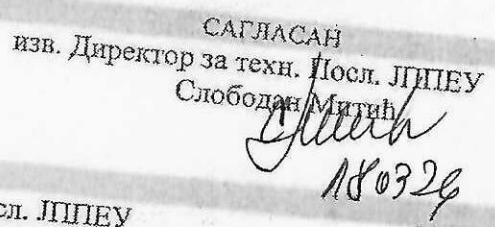 САГЛАСАН
изв. Директор за техн. Посл. ЈППЕУ
Слободан Митић
180326
сл. ЈППЕУ